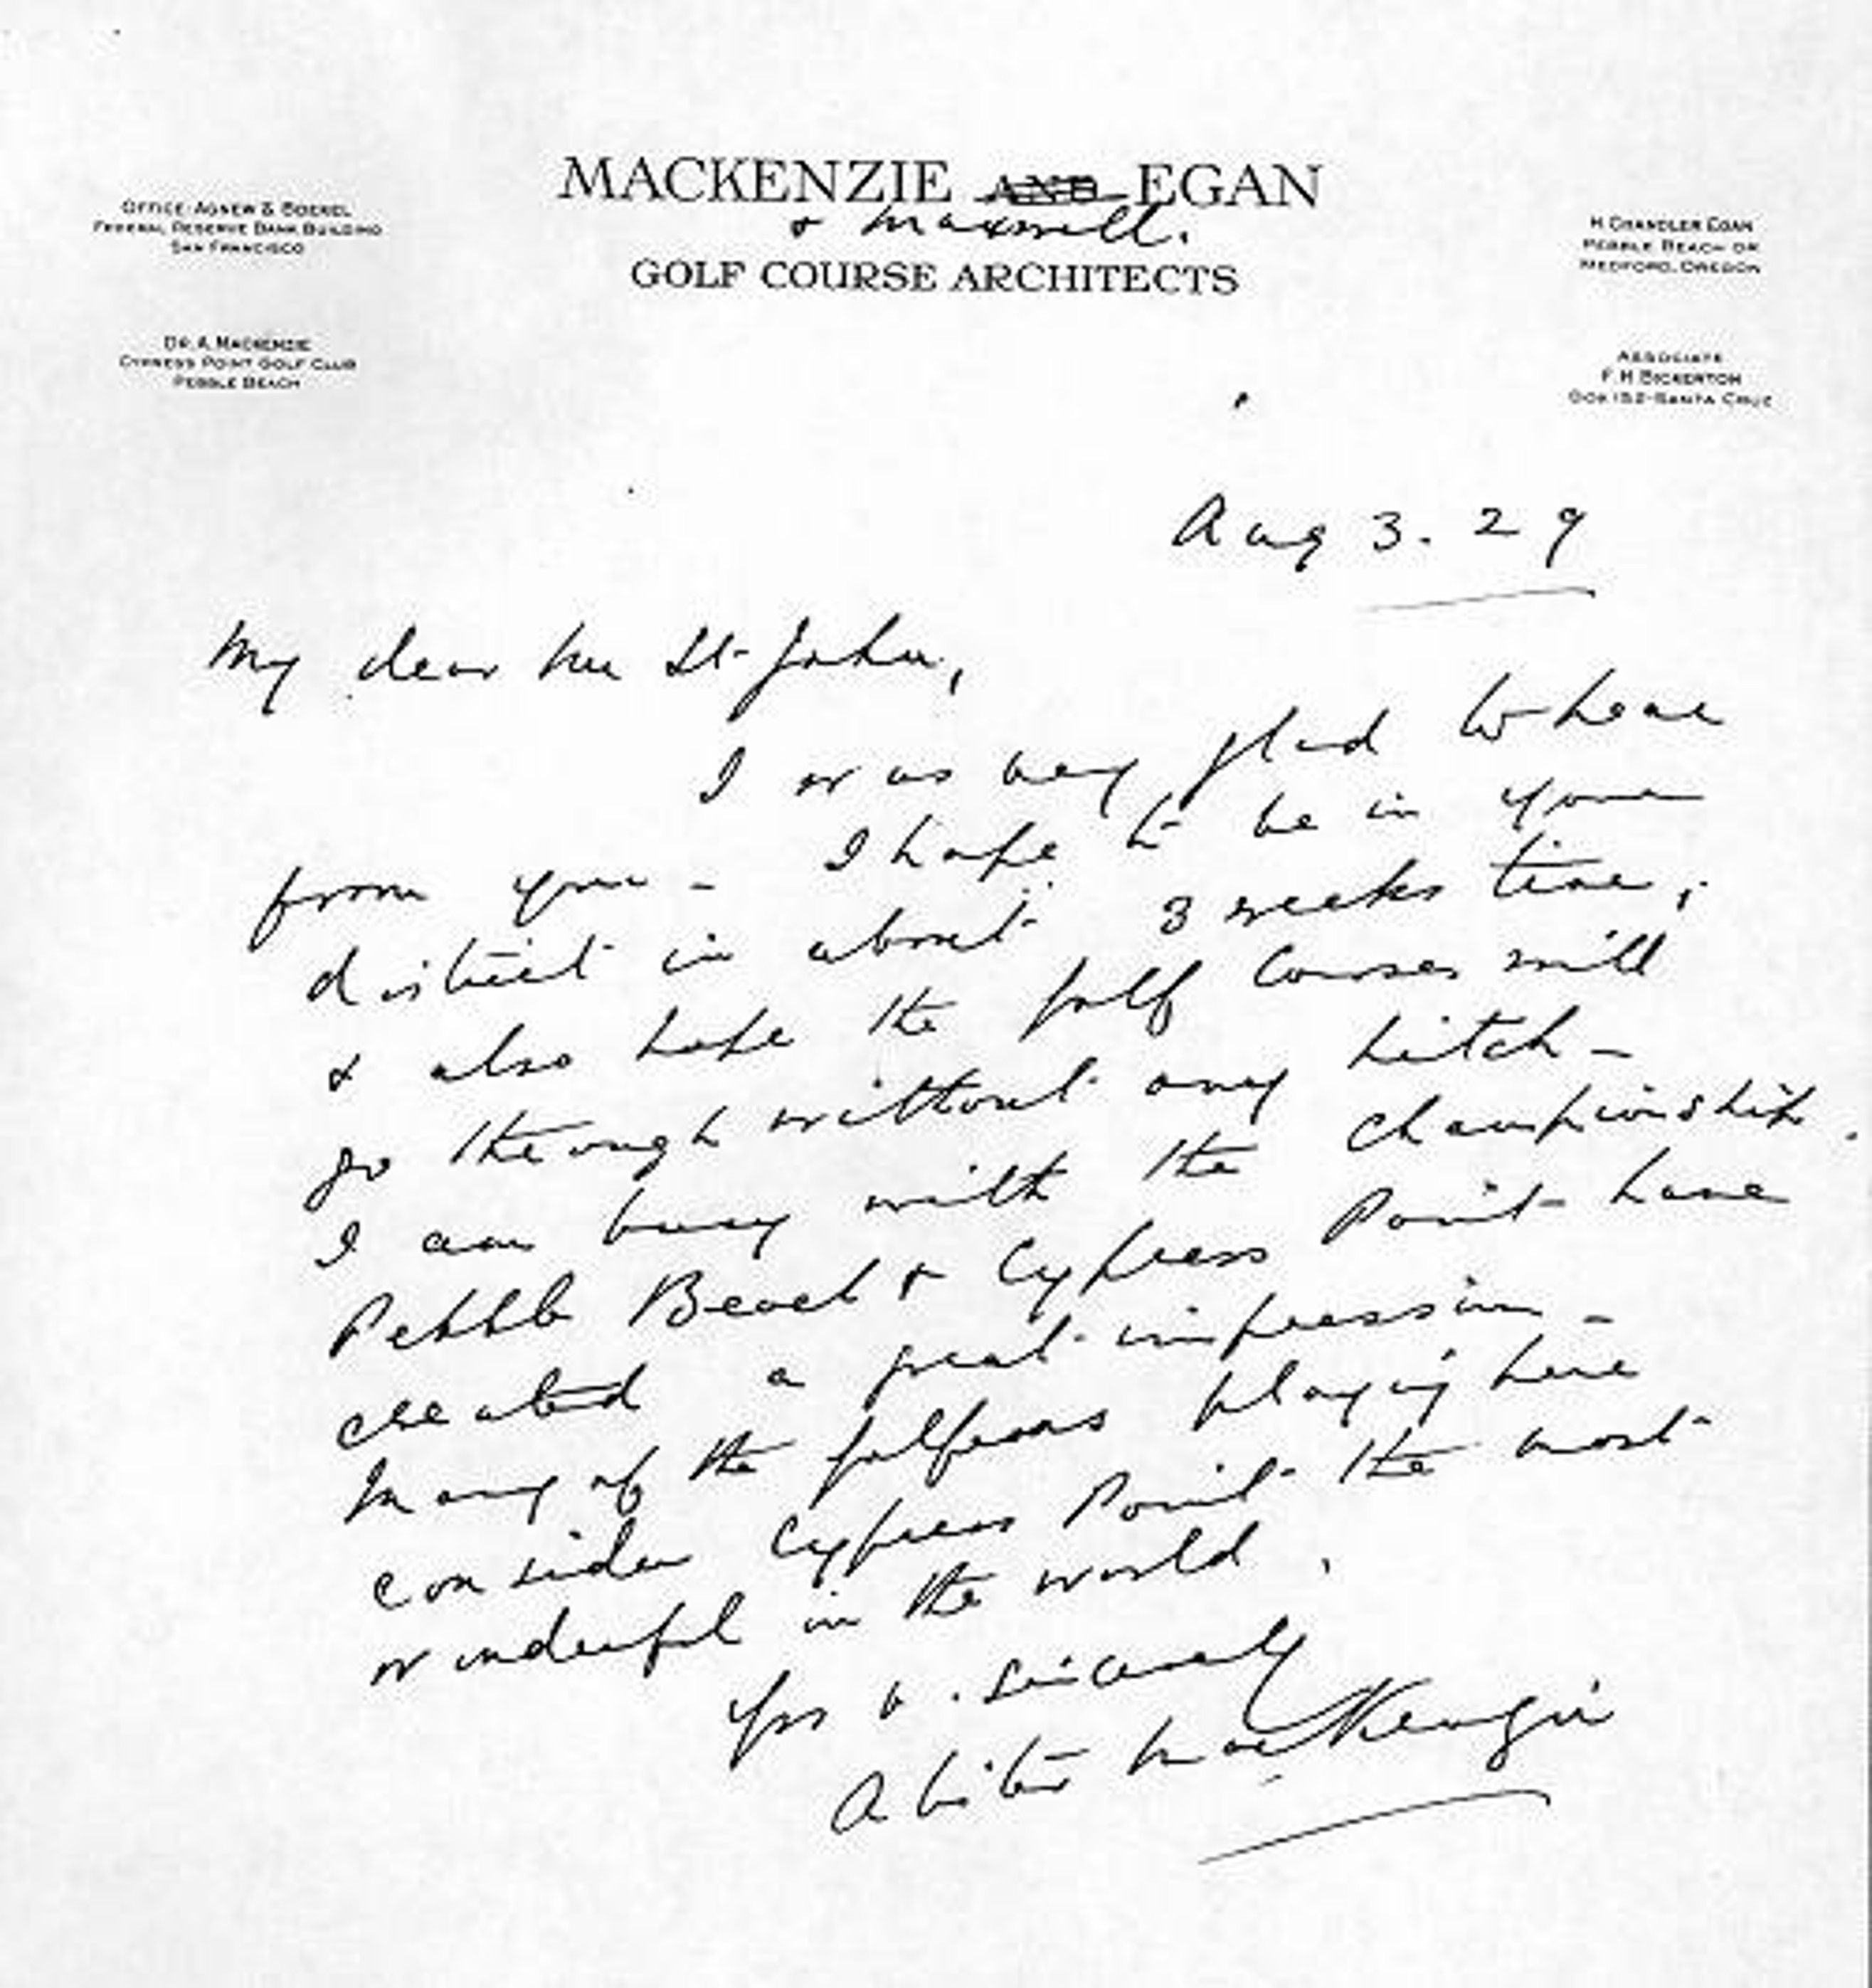 MACKENZIE AND EGAN
& Maxwell.
GOLF COURSE ARCHITECTS
OFFICE: AGNEW & BOEKEL
FEDERAL RESERVE BANK BUILDING
SAN FRANCISCO
DR. A. MACKENZIE
CYPRESS POINT GOLF CLUB
PEBBLE BEACH
H. CHANDLER EGAN
PEBBLE BEACH OR
MEDFORD, OREGON
ASSOCIATE
F. H. BICKERTON
BOX 152-SANTA CRUZ
Aug 3. 29
My dear Mr St. John,
I was very glad to hear
from you - I hope to be in your
district in about 3 weeks time,
& also hope the golf courses will
go through without any hitch -
I am busy with the championship.
Pebble Beach & Cypress Point have
created a great impression -
Many of the golfers playing here
consider Cypress Point the most
wonderful in the world.
Yrs v. sincerely
Alister MacKenzie